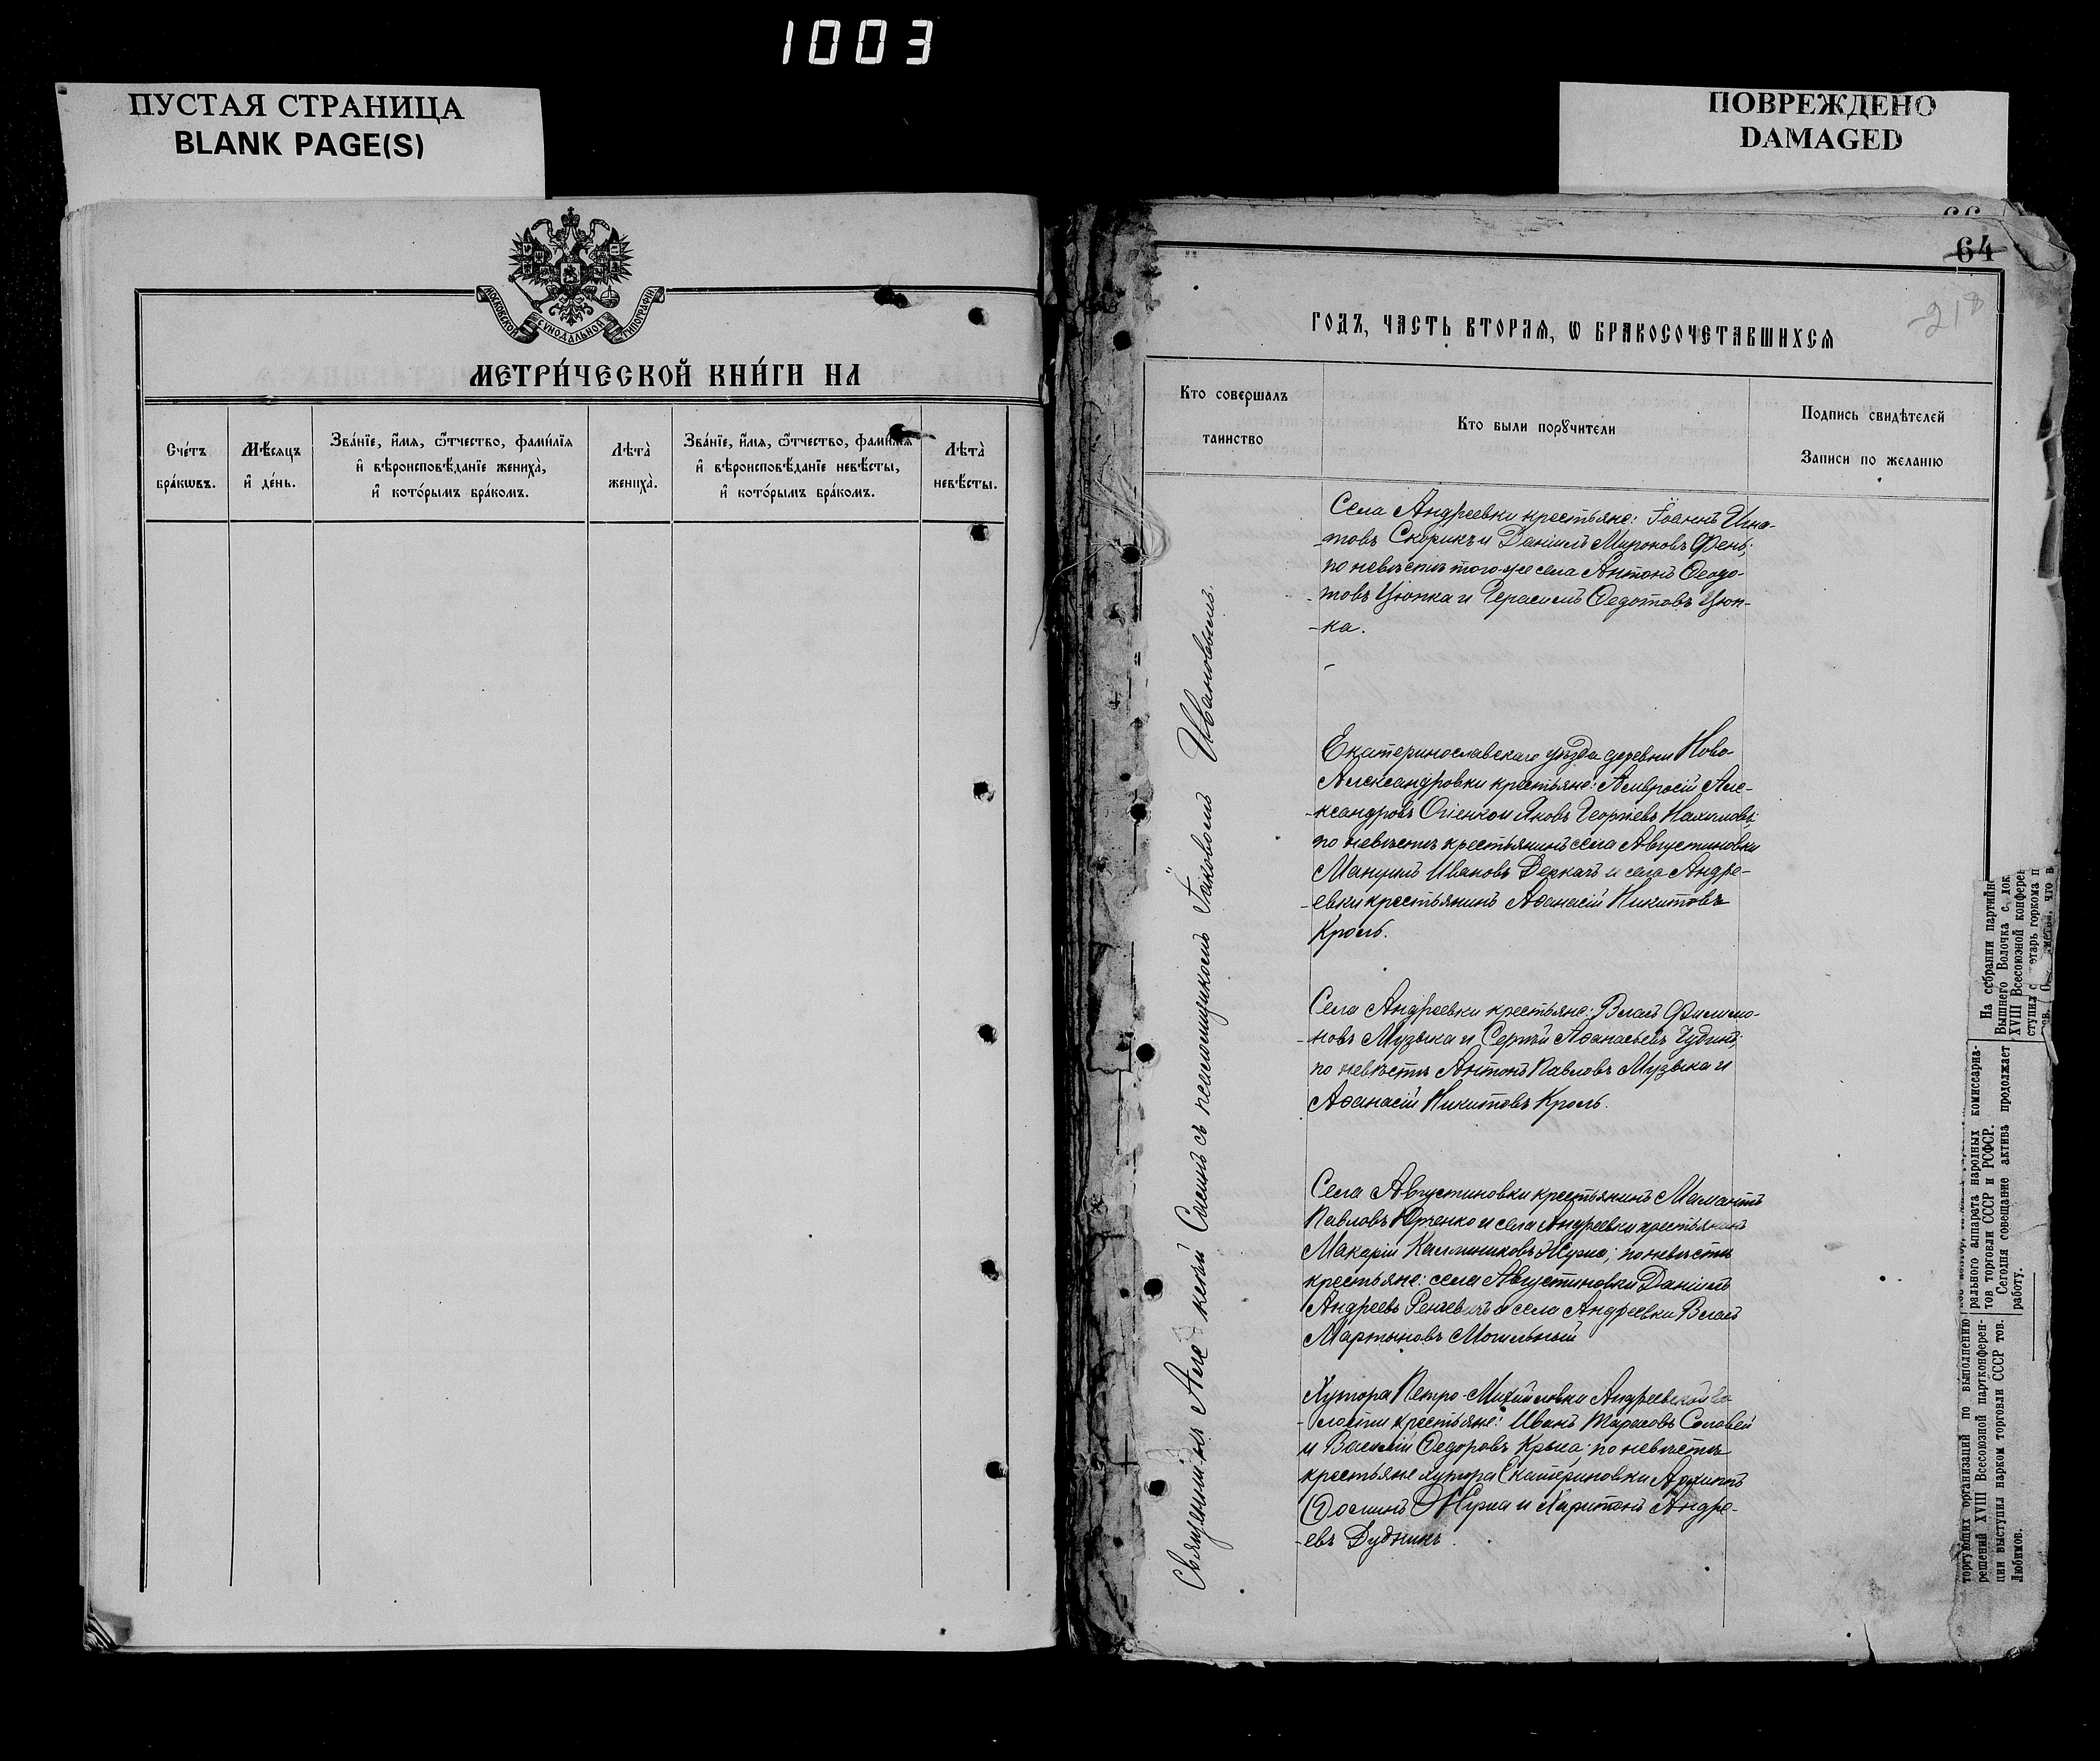 1003
ПУСТАЯ СТРАНИЦА
BLANK PAGE(S)
ПОВРЕЖДЕНО
DAMAGED
МОСКОВСКОЙ СУНОДАЛЬНОЙ ТИПОГРАФІИ
МЕТРИ́ЧЕСКОЙ КНИ́ГИ НА
Сче́тъ
бра́кѡвъ.
Мѣ́сяцъ
и҆ де́нь.
Зва́нїе, и҆́мя, ѻ҆́тчество, фами́лїя
и҆ вѣроисповѣ́данїе жениха̀,
и҆ кото́рымъ бра́комъ.
Лѣта̀
жениха̀.
Зва́нїе, и҆́мя, ѻ҆́тчество, фами́лїя
и҆ вѣроисповѣ́данїе невѣ́сты,
и҆ кото́рымъ бра́комъ.
Лѣта̀
невѣ́сты.
66
64
218
ГОДЪ, ЧАСТЬ ВТОРАѦ, Ѡ БРАКОСОЧЕТАВШИХСѦ
Кто совершалъ
таинство
Кто были порꙋчители
Подпись свидѣтелей
Записи по желанію
Священникъ Алекѣй Сосинъ с псаломщикомъ Іаковомъ Ивановымъ.
Села Андреевки крестьяне: Іоаннъ Игна-
-товъ Скорикъ и Даніилъ Мироновъ Фень;
по невѣстѣ того-же села Антонъ Ѳеодо-
-товъ Цюпка и Герасимъ Ѳедотовъ Цюп-
-ка.
Екатеринославскаго уѣзда деревни Ново-
Александровки крестьяне: Амвросій Але-
-ксандровъ Огіенко и Яковъ Георгіевъ
по невѣстѣ крестьянинъ села Августиновки
Мануилъ Ивановъ Деркачъ и села Андре-
-евки крестьянинъ Аѳанасій Никитовъ
Кроль.
Села Андреевки крестьяне: Власій Филимо-
-новъ Музыка и Сергѣй Аѳанасьевъ
по невѣстѣ Антонъ Павловъ Музыка и
Аѳанасій Никитовъ Кроль.
Села Августиновки крестьянинъ Мамантъ
Павловъ Юрченко и села Андреевки крестьянинъ
Макарій Каллиниковъ по невѣстѣ
крестьяне: села Августиновки Даніилъ
Андреевъ и села Андреевки Власій
Мартыновъ Могильный
Хутора Петро-Михайловки Андреевской во-
-лости крестьяне: Иванъ Тарасовъ Соловей
и Василій Ѳедоровъ Крыса; по невѣстѣ
крестьяне хутора Екатериновки Архипъ
Ѳоминъ и Харитонъ Андре-
-евъ Дудникъ.
На собрании партийн
Вышнего Волочка с. док
XVIII Всесоюзной конферен
ступил с етарь горкома п
рального аппарата народных комиссариа-
тов торговли СССР и РСФСР.
Сегодня совещание актива продолжает
работу.
торгующих организаций по выполнению
решений XVIII Всесоюзной партконферен-
ции выступил нарком торговли СССР тов.
Любимов.